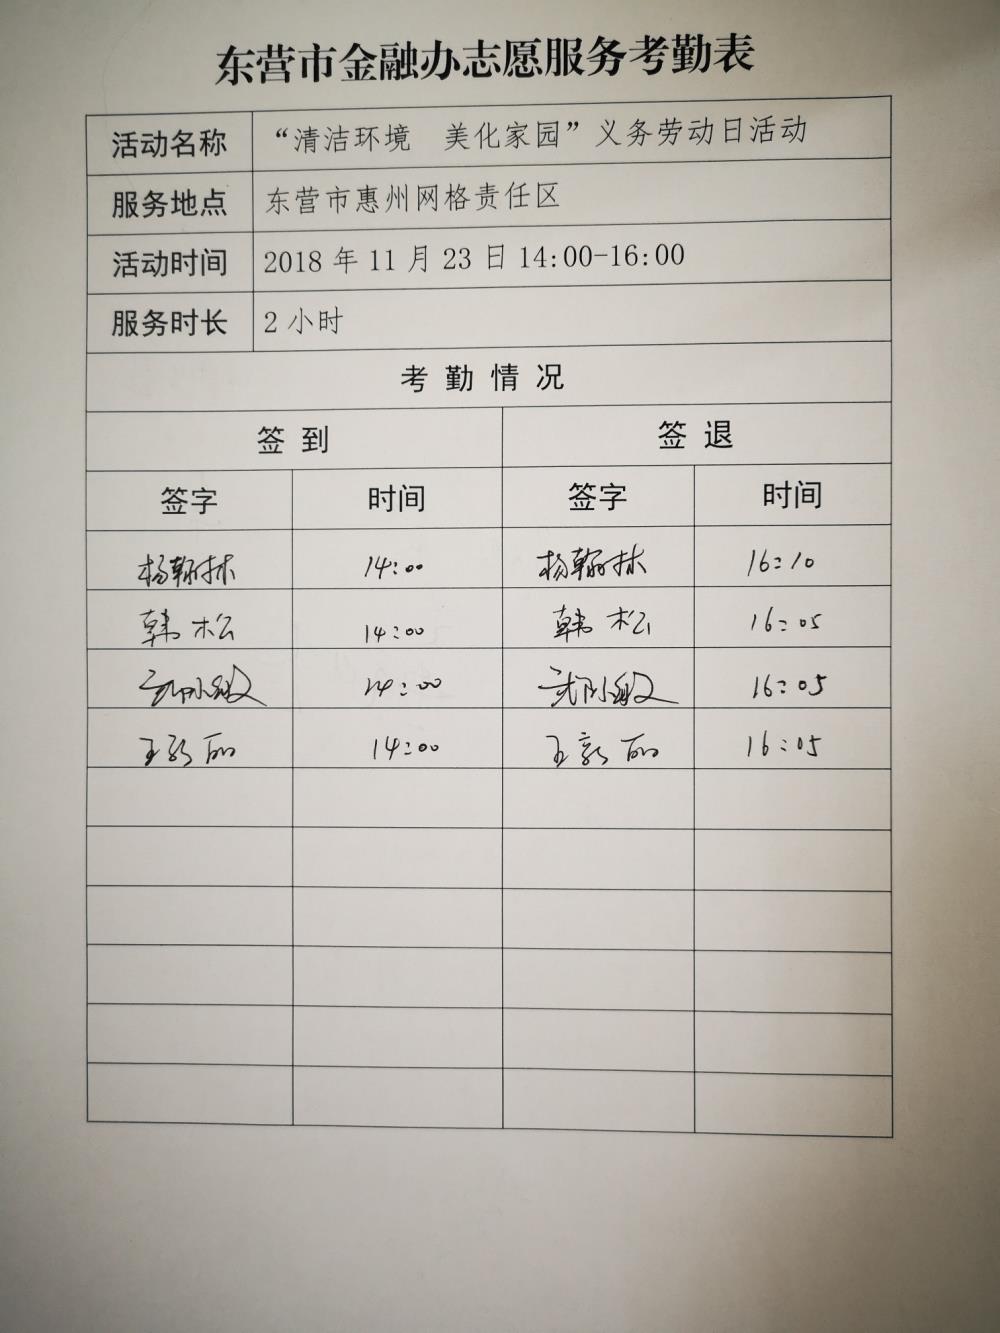 东营市金融办志愿服务考勤表
活动名称 “清洁环境 美化家园”义务劳动日活动
服务地点 东营市惠州网格责任区
活动时间 2018年11月23日14:00-16:00
服务时长 2小时
考勤情况
签到 签退
签字 时间 签字 时间
杨翰林 14:00 杨翰林 16:10
韩松 14:00 韩松 16:05
14:00 16:05
14:00 16:05